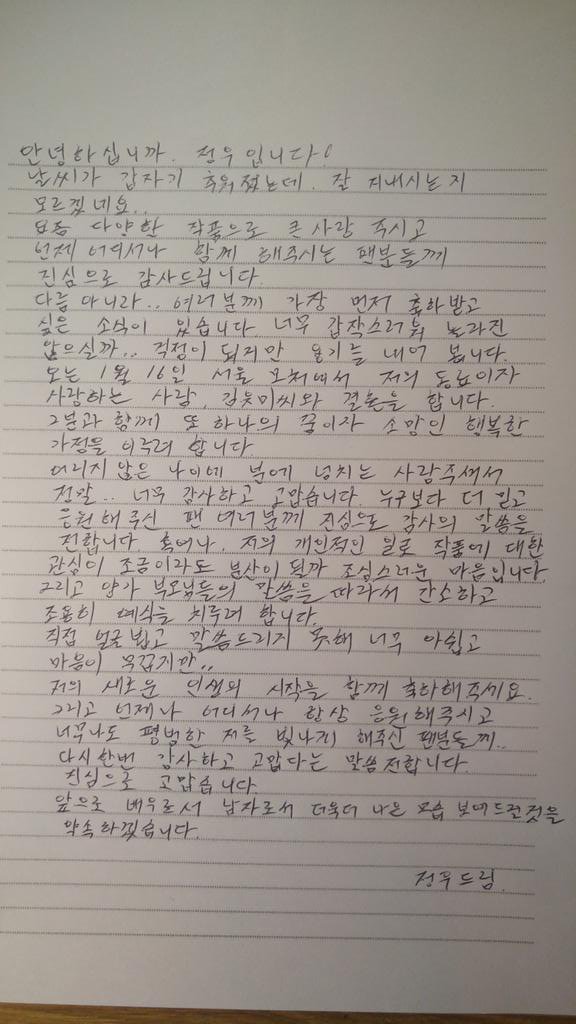 안녕하십니까. 정우입니다!
날씨가 갑자기 추워졌는데. 잘 지내시는지
모르겠네요..
요즘 다양한 작품으로 큰 사랑 주시고
언제 어디서나 함께 해주시는 팬분들께
진심으로 감사드립니다.
다름 아니라.. 여러분께 가장 먼저 축하받고
싶은 소식이 있습니다. 너무 갑작스러워 놀라진
않으실까.. 걱정이 되지만 용기를 내어 봅니다.
오는 1월 16일 서울 모처에서 저의 동료이자
사랑하는 사람, 김유미씨와 결혼을 합니다.
그분과 함께 또 하나의 꿈이자 소망인 행복한
가정을 이루려 합니다.
어리지 않은 나이에 분에 넘치는 사랑주셔서
정말.. 너무 감사하고 고맙습니다. 누구보다 더 믿고
응원해주신 팬 여러분께 진심으로 감사의 말씀을
전합니다. 혹여나. 저의 개인적인 일로 작품에 대한
관심이 조금이라도 분산이 될까 조심스러운 마음입니다.
그리고 양가 부모님들의 말씀을 따라서 간소하고
조용히 예식을 치루려 합니다.
직접 얼굴 뵙고 말씀드리지 못해 너무 아쉽고
마음이 무겁지만..
저의 새로운 인생의 시작을 함께 축하해주세요.
그리고 언제나 어디서나 항상 응원해주시고
너무나도 평범한 저를 빛나게 해주신 팬분들께..
다시한번 감사하고 고맙다는 말씀전합니다.
진심으로 고맙습니다.
앞으로 배우로서 남자로서 더욱더 나은 모습 보여드릴것을
약속하겠습니다.
정우드림.